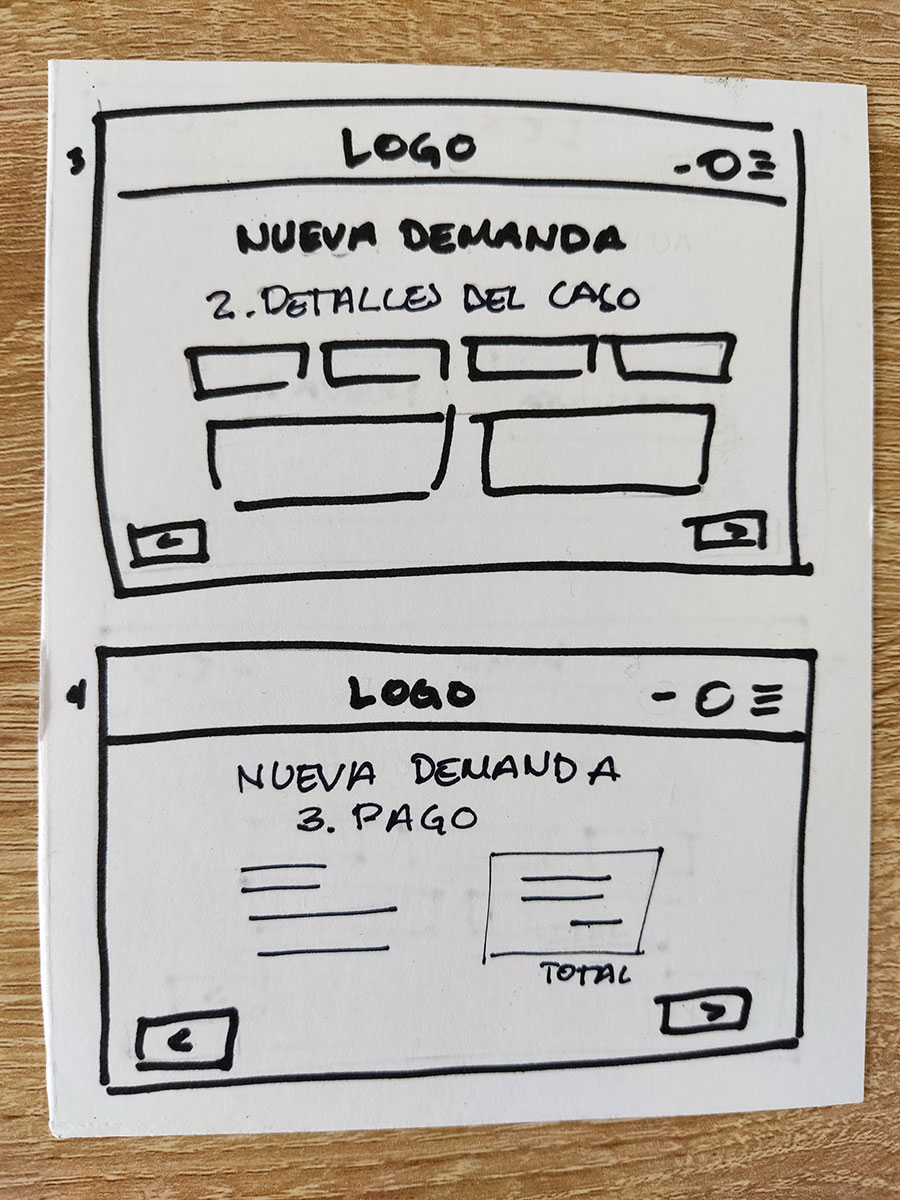 3
LOGO
NUEVA DEMANDA
2. DETALLES DEL CASO
<
>
4
LOGO
NUEVA DEMANDA
3. PAGO
TOTAL
<
>